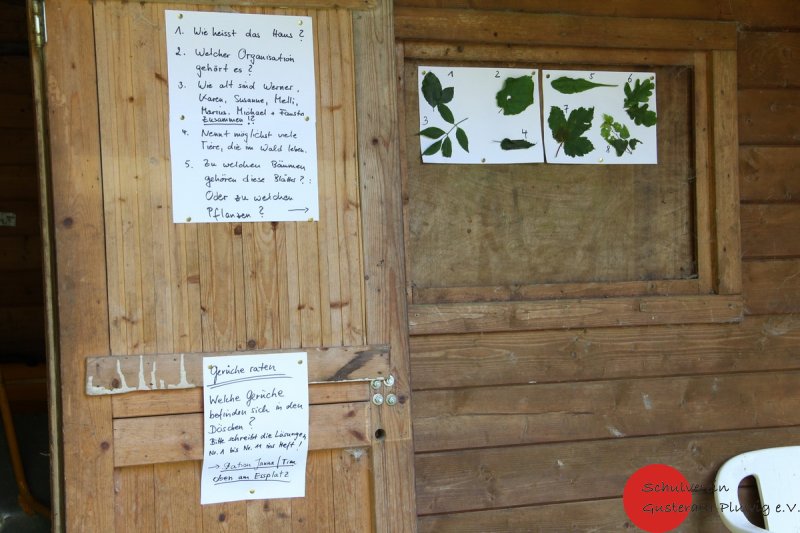 1. Wie heisst das Haus?
2. Welcher Organisation
gehört es?
3. Wie alt sind Werner,
Karen, Susanne, Melli,
Marcus, Michael + Fausto
zusammen!?
4. Nennt möglichst viele
Tiere, die im Wald leben.
5. Zu welchen Bäumen
gehören diese Blätter?:
Oder zu welchen
Pflanzen? →
1 2
3 4
5 6
7 8
Gerüche raten
Welche Gerüche
befinden sich in den
Döschen?
Bitte schreibt die Lösungen,
Nr. 1 bis Nr. 11 ins Heft!
→ Station Janna/Tim
oben am Essplatz
Schulverein
Gusterath Pluwig e.V.